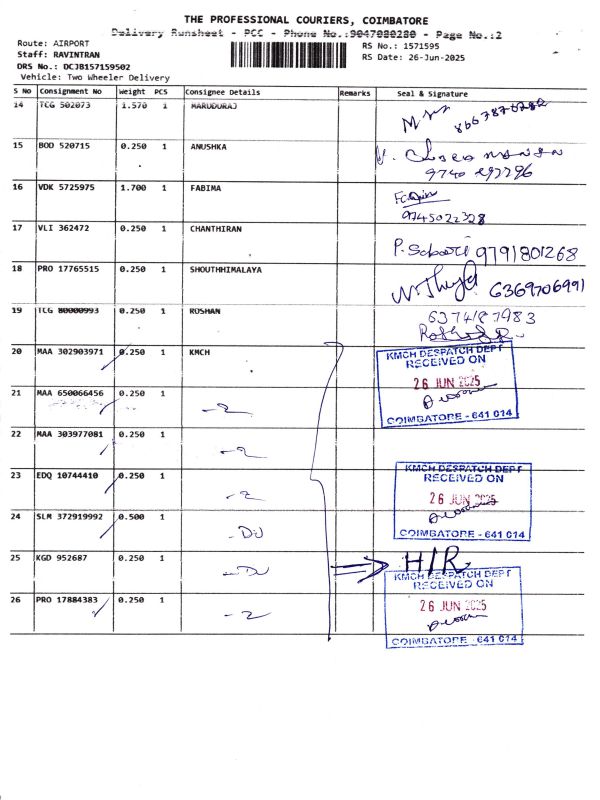 THE PROFESSIONAL COURIERS, COIMBATORE
Delivery Runsheet - PCC - Phone No.:9047080280 - Page No.:2
Route: AIRPORT
Staff: RAVINTRAN
DRS No.: DCJB157159502
Vehicle: Two Wheeler Delivery
RS No.: 1571595
RS Date: 26-Jun-2025
S No Consignment No Weight PCS Consignee Details Remarks Seal & Signature
14 TCG 502073 1.570 1 MARUDURAJ
15 BOD 520715 0.250 1 ANUSHKA
16 VDK 5725975 1.700 1 FABIMA
9745022328
17 VLI 362472 0.250 1 CHANTHIRAN
9791801268
18 PRO 17765515 0.250 1 SHOUTHHIMALAYA
6369706991
19 TCG 80000993 0.250 1 ROSHAN
6374187983
20 MAA 302903971 0.250 1 KMCH
KMCH DESPATCH DEPT
RECEIVED ON
26 JUN 2025
COIMBATORE - 641 014
21 MAA 650066456 0.250 1
22 MAA 303977081 0.250 1
23 EDQ 10744410 0.250 1
KMCH DESPATCH DEPT
RECEIVED ON
26 JUN 2025
COIMBATORE - 641 014
24 SLM 372919992 0.500 1
25 KGD 952687 0.250 1
H/R
26 PRO 17884383 0.250 1
KMCH DESPATCH DEPT
RECEIVED ON
26 JUN 2025
COIMBATORE - 641 014